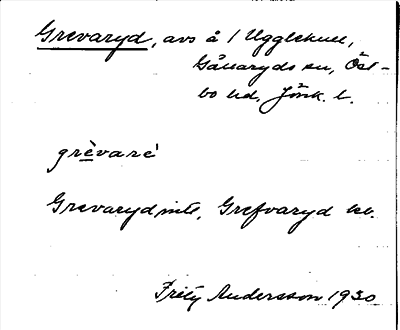 Grevaryd, avs å 1 Ugglekull,
Gållaryds sn, Öst-
bo hd, Jönk. l.
grèvare'
Grevaryd mtl, Grefvaryd kb.
Fritz Andersson 1930